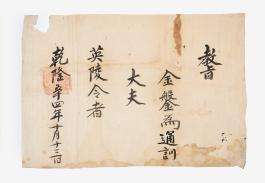 敎旨
金盤爲通訓
大夫
英陵令者
乾隆四年十月十二日